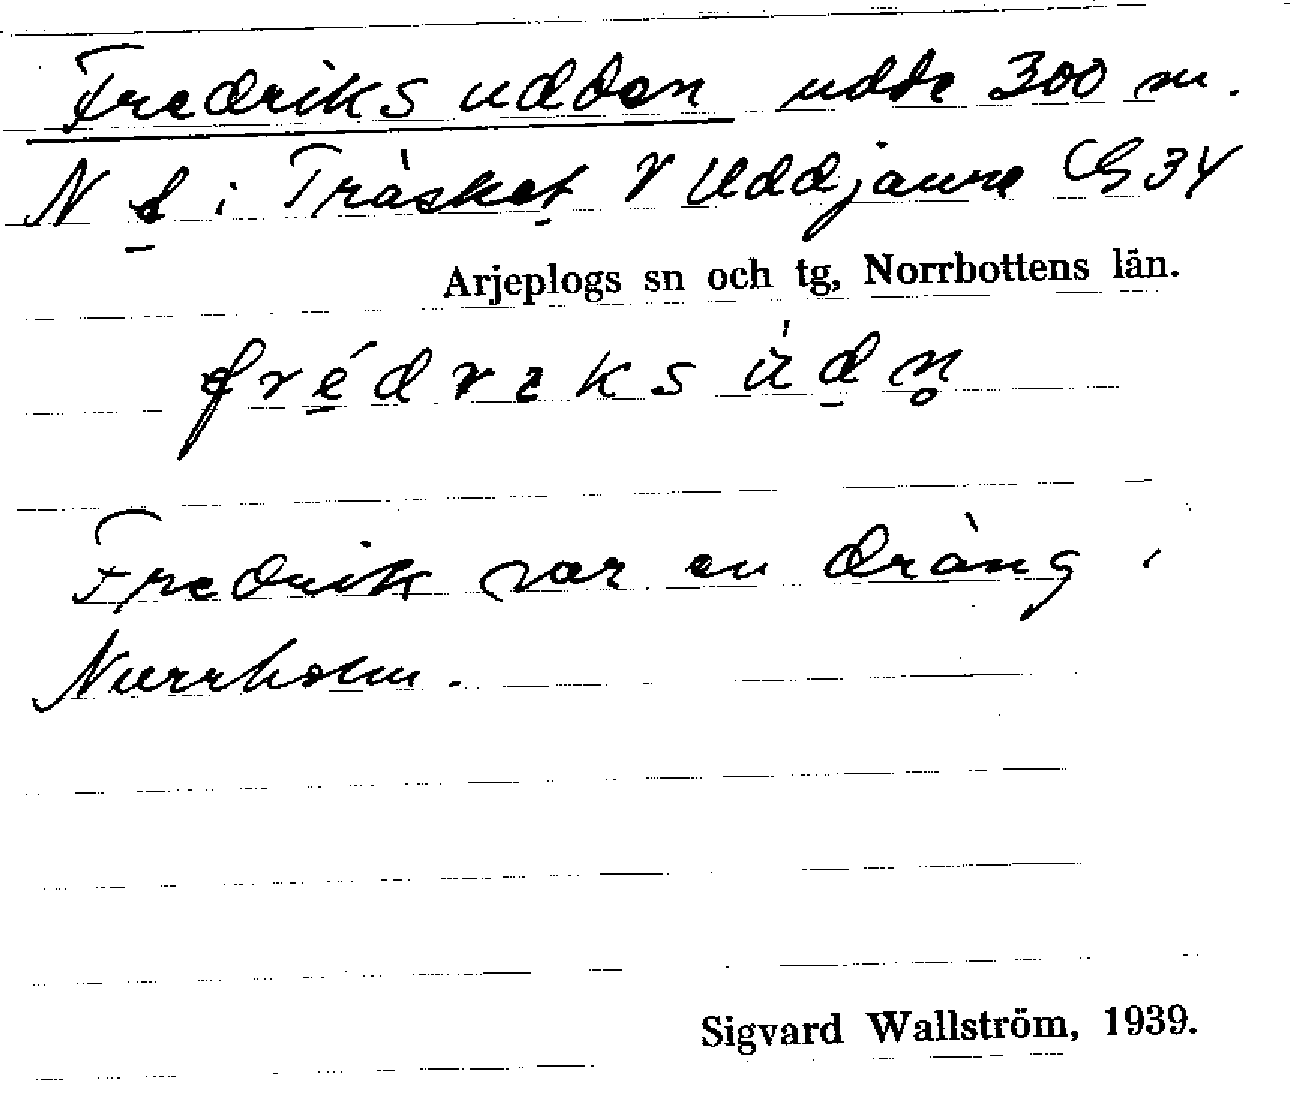 Fredriksudden udde 300 m.
N b i Träsket V Uddjaure G34
Arjeplogs sn och tg, Norrbottens län.
frédrɩksu̇dn̥
Fredrik var en dräng i
Nurrholm.
Sigvard Wallström, 1939.